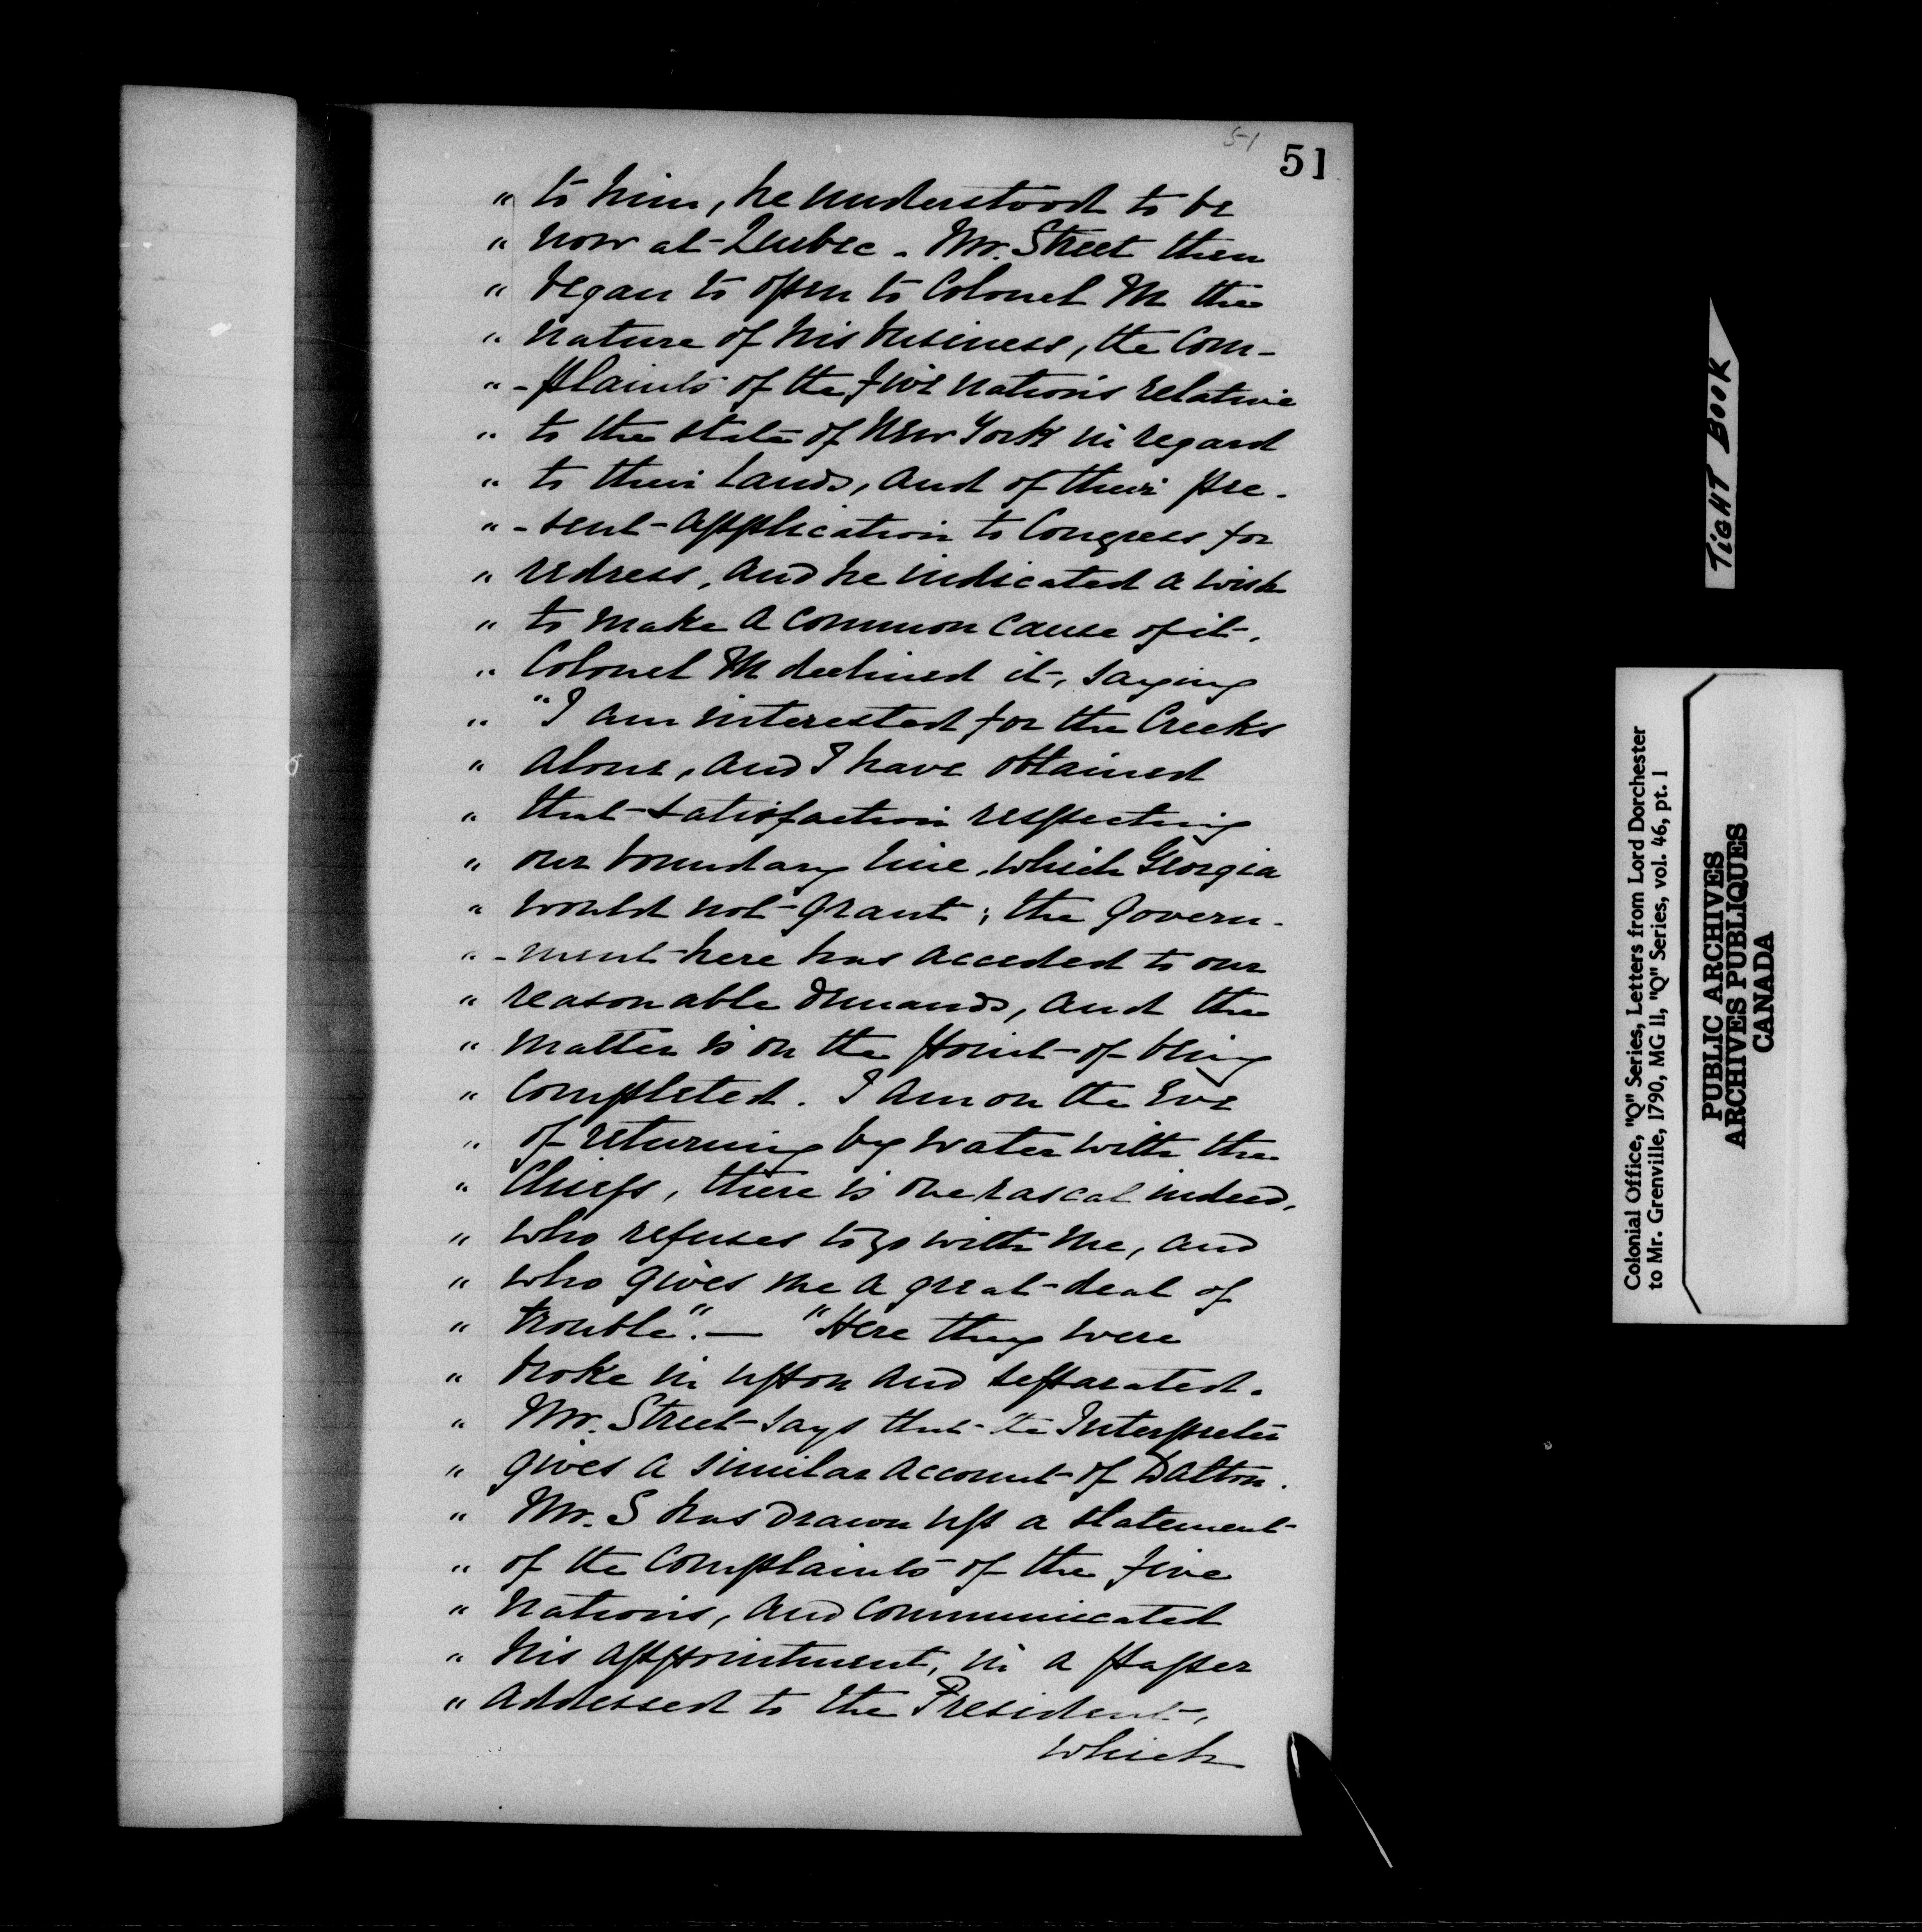 51
51
" to him, he understood to be
" now at Quebec. Mr. Street then
" began to open to Colonel M the
" nature of his business, the Com-
" -plaints of the five nations relative
" to the state of New York in regard
" to their Lands, and of their pre-
" -sent application to Congress for
" redress, and he indicated a wish
" to make a common cause of it.
" Colonel M declined it, saying
" "I am interested for the Creeks
" alone, and I have obtained
" that satisfaction respecting
" our boundary line, which Georgia
" would not grant; the Govern-
" -ment here has acceded to our
" reasonable demands, and the
" matter is on the point of being
" completed. I am on the Eve
" of returning by water with the
" Chiefs, there is one rascal indeed,
" who refuses to go with me, and
" who gives me a great deal of
" trouble". — "Here they were
" broke in upon and separated.
" Mr. Street says that the Interpreter
" gives a similar account of Dalton.
" Mr. S has drawn up a statement
" of the complaints of the five
" nations, and communicated
" his appointment, in a paper
" addressed to the President,
which
TIGHT BOOK
Colonial Office, "Q" Series, Letters from Lord Dorchester
to Mr. Grenville, 1790, MG 11, "Q" Series, vol. 46, pt. 1
PUBLIC ARCHIVES
ARCHIVES PUBLIQUES
CANADA